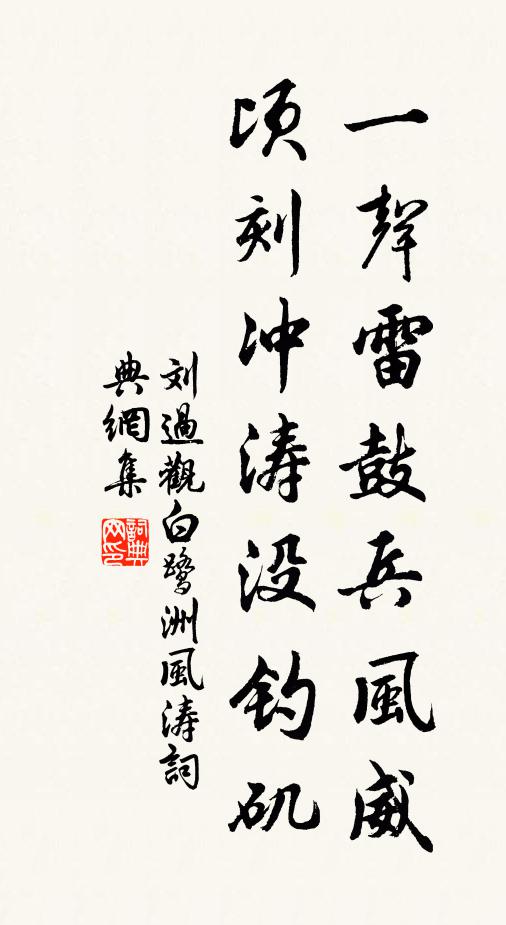 一聲雷鼓兵風威
頃刻冲涛没钓矶
刘過觀白鹭洲風涛詞
典網集
詞典网印